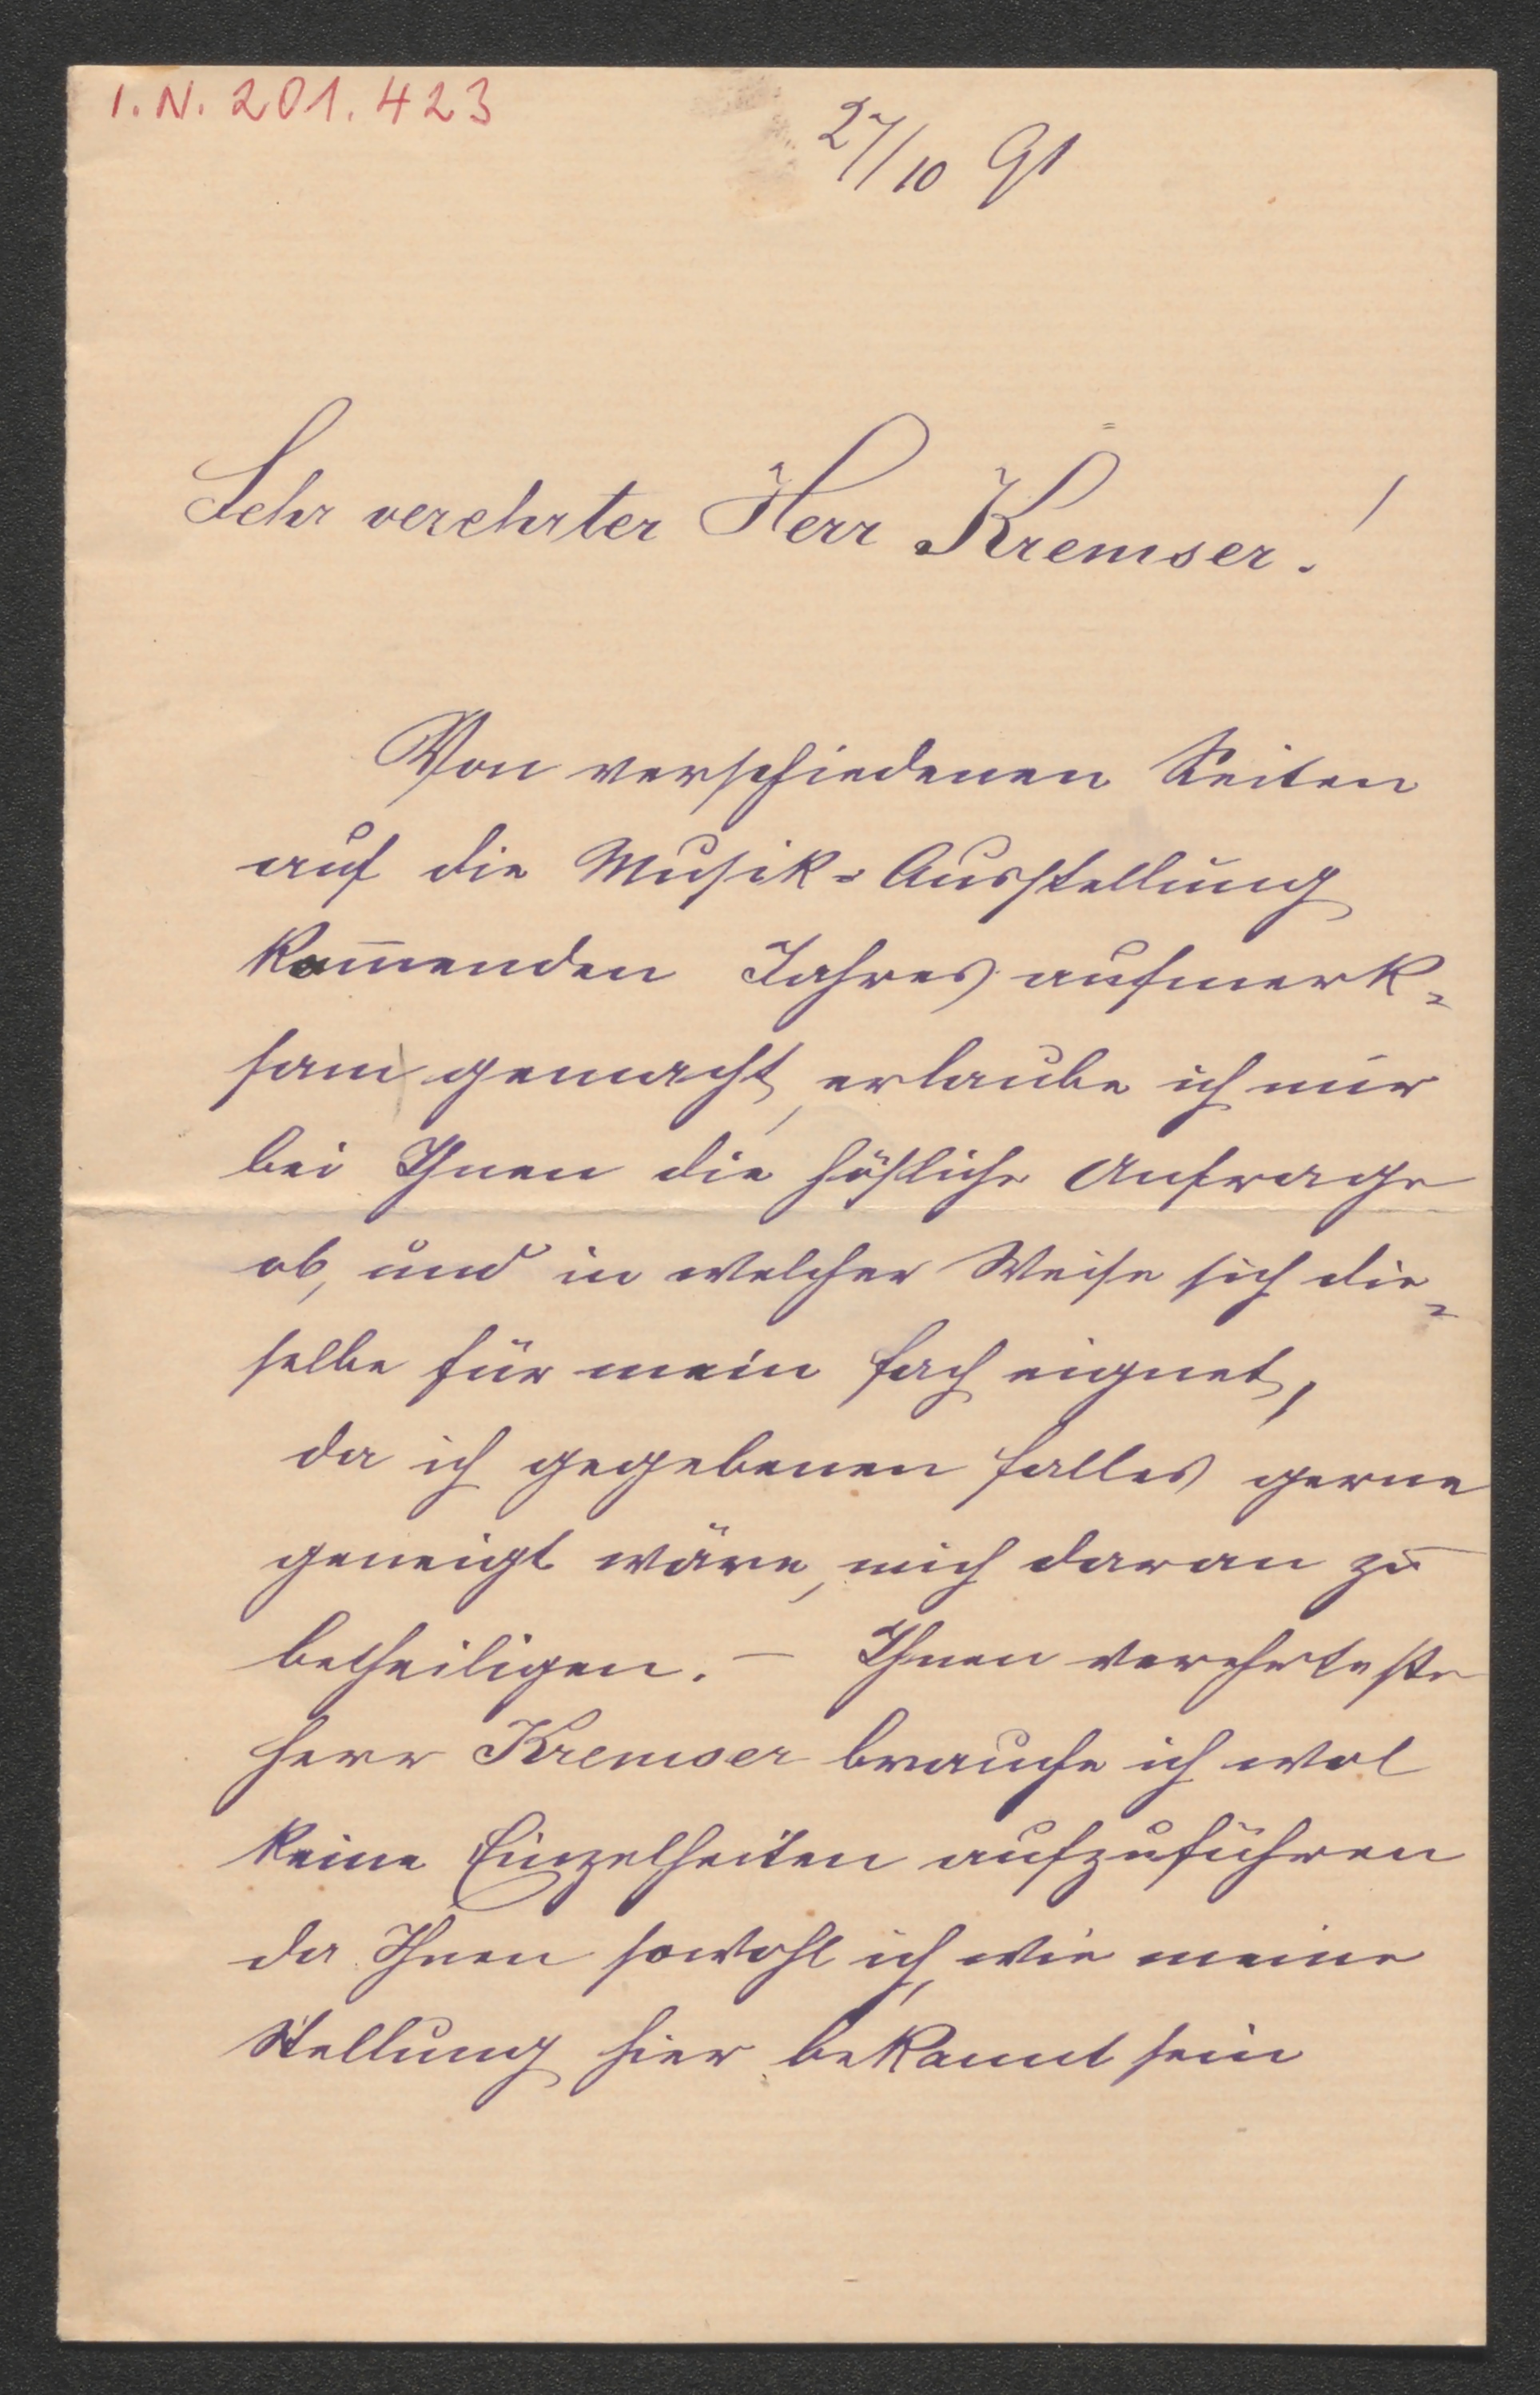 I. N. 201.423
27/10 91
Sehr verehrter Herr Kremser!
Von verschiedenen Seiten
auf die Musik-Ausstellung
kom̅enden Jahres aufmerk-
sam gemacht, erlaube ich mir
bei Ihnen die höfliche Anfrage
ob, und in welcher Weise sich die-
selbe für mein Fach eignet,
da ich gegebenen Falles gerne
geneigt wäre, mich daran zu
betheiligen. – Ihnen verehrtester
Herr Kremser brauche ich wol
keine Einzelheiten aufzuführen
da Ihnen sowohl ich, wie meine
Stellung hier bekannt sein